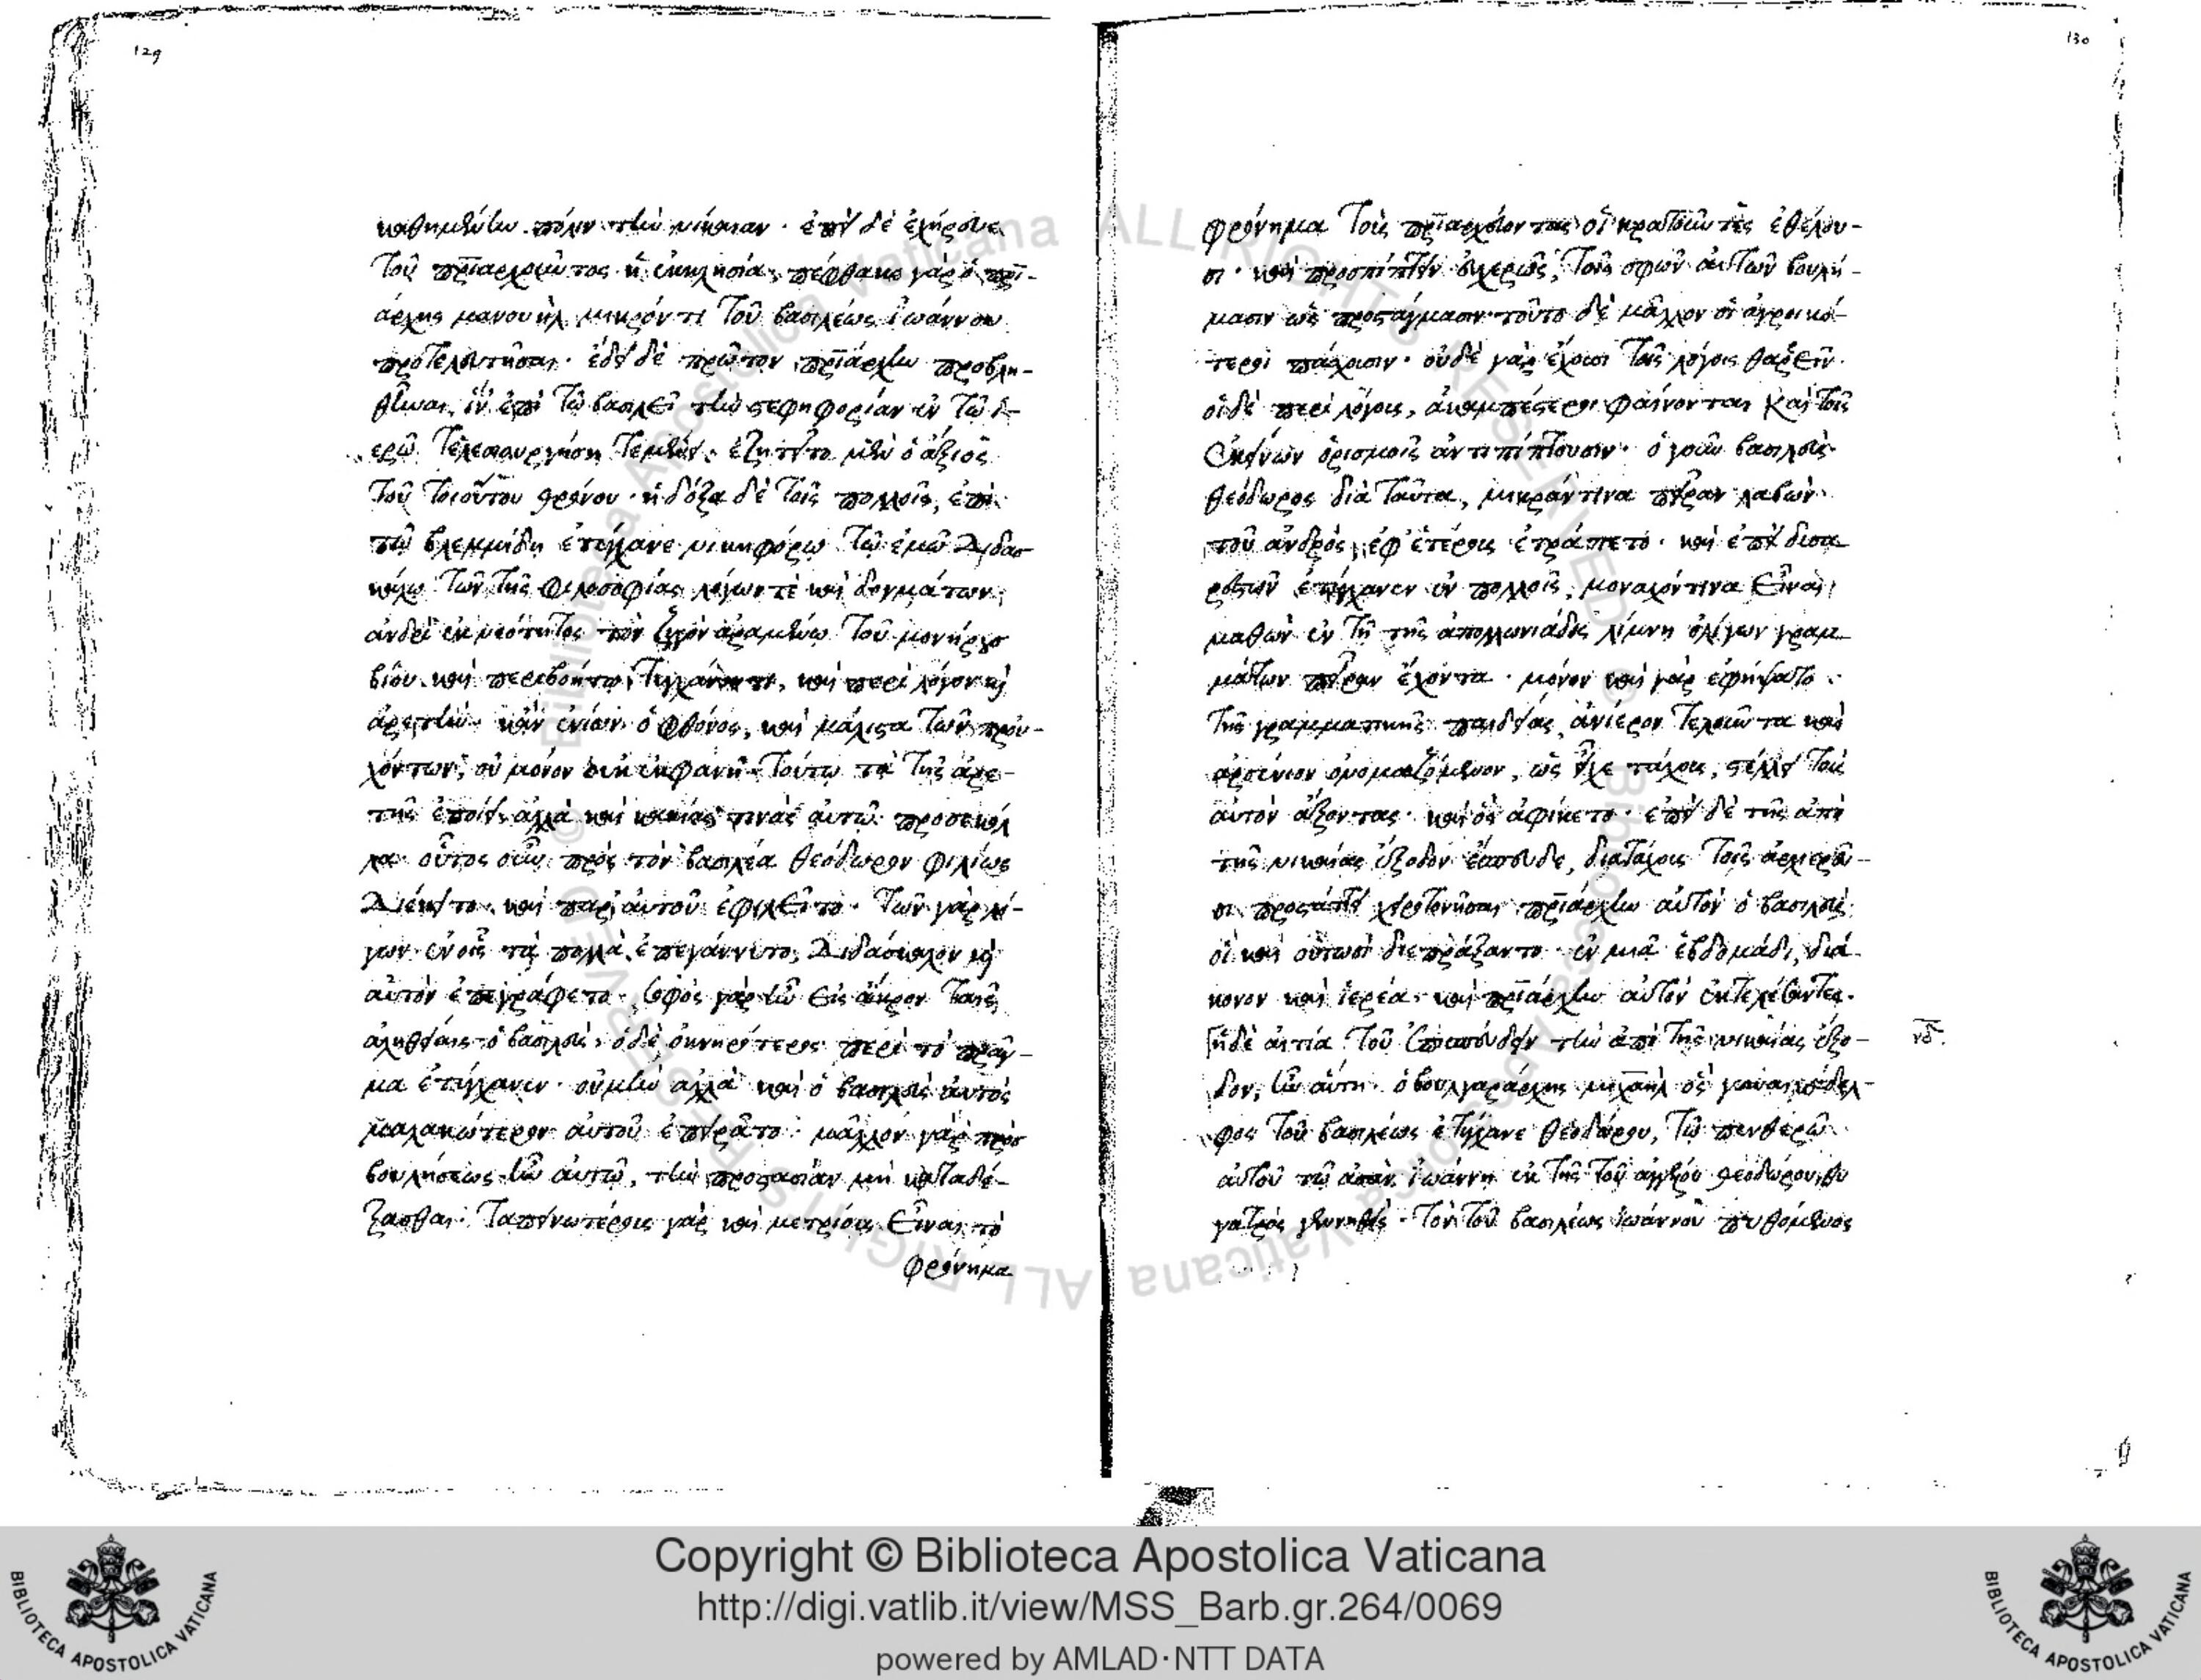 129
καθημένην πόλιν τὴν νίκαιαν · ἐπεὶ δὲ ἐχήρευε
τοῦ πριαρχοῦντος ἡ ἐκκλησία, πέφθακε γὰρ ὁ πρι-
άρχης μανουὴλ μικρόν τι τοῦ βασιλέως ἰωάννου
προτελευτῆσαι · ἔδει δὲ πρῶτον πριάρχην προβλη-
θῆναι, ἵν' ἐπὶ τῷ βασιλεῖ τὴν στεφηφορίαν ἐν τῷ ἱ-
ερῷ τελεσιουργήσῃ τεμένει · ἐζητεῖτο μὲν ὁ ἄξιος
τοῦ τοιούτου θρόνου · ἡ δόξα δὲ τοῖς πολλοῖς, ἐπὶ
τῷ βλεμμίδῃ ἐτύγχανε νικηφόρῳ τῷ ἐμῷ διδασ
κάλῳ τῶν τῆς φιλοσοφίας λόγων τὲ καὶ δογμάτων,
ἀνδρὶ ἐκ νεότητος τὸν ζυγὸν ἀραμένῳ τοῦ μονήρους
βίου καὶ περιβοήτῳ τυγχάνοντι, καὶ περὶ λόγον καὶ
ἀρετὴν · κἂν ἐνίων ὁ φθόνος, καὶ μάλιστα τῶν πρου-
χόντων, οὐ μόνον οὐκ ἐκφανῆ τούτῳ τὰ τῆς ἀρε-
τῆς ἐποίει, ἀλλὰ καὶ κακίας τινὰς αὐτῷ προσεκόλ
λα · οὗτος οὖν πρὸς τὸν βασιλέα θεόδωρον φιλίως
διέκειτο · καὶ παρ' αὐτοῦ ἐφιλεῖτο · τῶν γὰρ λό-
γων ἐν οἷς τὰ πολλὰ ἐπεγάννυτο, διδάσκαλον καὶ
αὐτὸν ἐπεγράφετο · σοφὸς γὰρ ἦν εἰς ἄκρον ταῖς
ἀληθείαις ὁ βασιλεύς, ὁ δὲ ὀκνηρότερος περὶ τὸ πρᾶγ-
μα ἐτύγχανεν · οὐ μὴν ἀλλὰ καὶ ὁ βασιλεὺς αὐτὸς
μαλακώτερον αὐτοῦ ἐπειρᾶτο · μᾶλλον γὰρ πρὸς
βουλήσεως ἦν αὐτῷ, τὴν προστασίαν μὴ καταδέ-
ξασθαι · ταπεινωτέρους γὰρ καὶ μετρίους εἶναι τὸ
φρόνημα
130
φρόνημα τοὺς πριαρχεύοντας οἱ κρατοῦντες ἐθέλου-
σι · καὶ προσπίπτειν εὐχερῶς τοῖς σφῶν αὐτῶν βουλή-
μασιν ὡς προστάγμασιν · τοῦτο δὲ μᾶλλον οἱ ἀγροικό-
τεροι πάσχουσιν · οὐδὲ γὰρ ἔχουσι τοῖς λόγοις θαῤῥεῖν ·
οἱ δὲ περὶ λόγους, ἀκαμπέστεροι φαίνονται καὶ τοῖς
ἐκείνων ὁρισμοῖς ἀντιπίπτουσιν · ὁ γοῦν βασιλεὺς
θεόδωρος διὰ ταῦτα, μικράν τινα πεῖραν λαβὼν
τοῦ ἀνδρὸς, ἐφ' ἑτέροις ἐτράπετο · καὶ ἐπεὶ δυσα
ρεστῶν ἐτύγχανεν ἐν πολλοῖς, μοναχόν τινα εἶναι
μαθὼν ἐν τῇ τῆς ἀπολλωνιάδος λίμνῃ ὀλίγων γραμ
μάτων πεῖραν ἔχοντα · μόνον καὶ γὰρ ἐφήψατο
τῆς γραμματικῆς παιδείας, ἀνίερον τελοῦντα καὶ
ἀρσένιον ὀνομαζόμενον, ὡς εἶχε τάχους, στέλλει τοὺς
αὐτὸν ἄξοντας · καὶ ὃς ἀφίκετο · ἐπεὶ δὲ τῆς ἀπὸ
τῆς νικαίας ἔξοδον ἔσπευδε, διαταχοὺς τοῖς ἀρχιερεῦ-
σι προστάττει χειροτονῆσαι πριάρχην αὐτὸν ὁ βασιλεύς
οἳ καὶ οὑτωσὶ διεπράξαντο · ἐν μιᾷ ἑβδομάδι, διά
κονον καὶ ἱερέα · καὶ πριάρχην αὐτὸν ἐκτελέσαντες ·
ἡ δὲ αἰτία τοῦ ἐπισπεύδειν τὴν ἀπὸ τῆς νικαίας ἔξο-
νδ.
δον, ἦν αὕτη · ὁ βουλγαράρχης μιχαὴλ ὃς γυναικάδελ-
φος τοῦ βασιλέως ἐτύγχανε θεοδώρου, τῷ πενθερῷ
αὐτοῦ τῷ ἀσὰν ἰωάννῃ ἐκ τῆς τοῦ ἀγγέλου θεοδώρου θυ
γατρὸς γεννηθείς · τὸν τοῦ βασιλέως ἰωάννου πυθόμενος
Copyright © Biblioteca Apostolica Vaticana
http://digi.vatlib.it/view/MSS_Barb.gr.264/0069
powered by AMLAD·NTT DATA
BIBLIOTECA APOSTOLICA VATICANA
BIBLIOTECA APOSTOLICA VATICANA